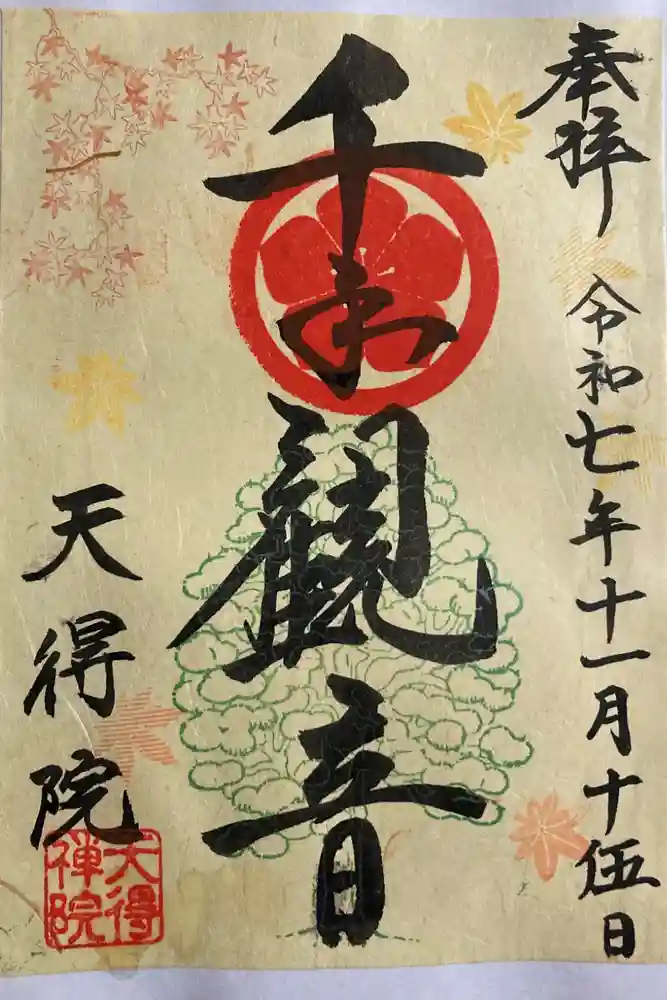 奉拝
令和七年十一月十伍日
千手観音
天得院
天得
禅院